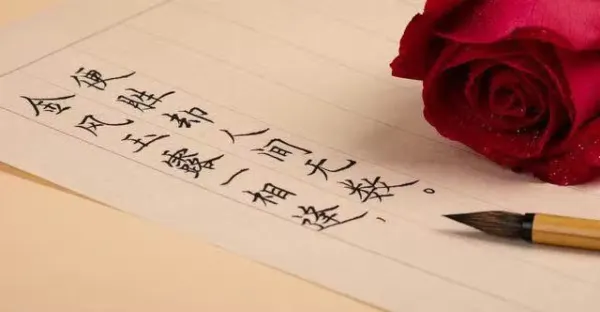 金风玉露一相逢、
便胜却人间无数。